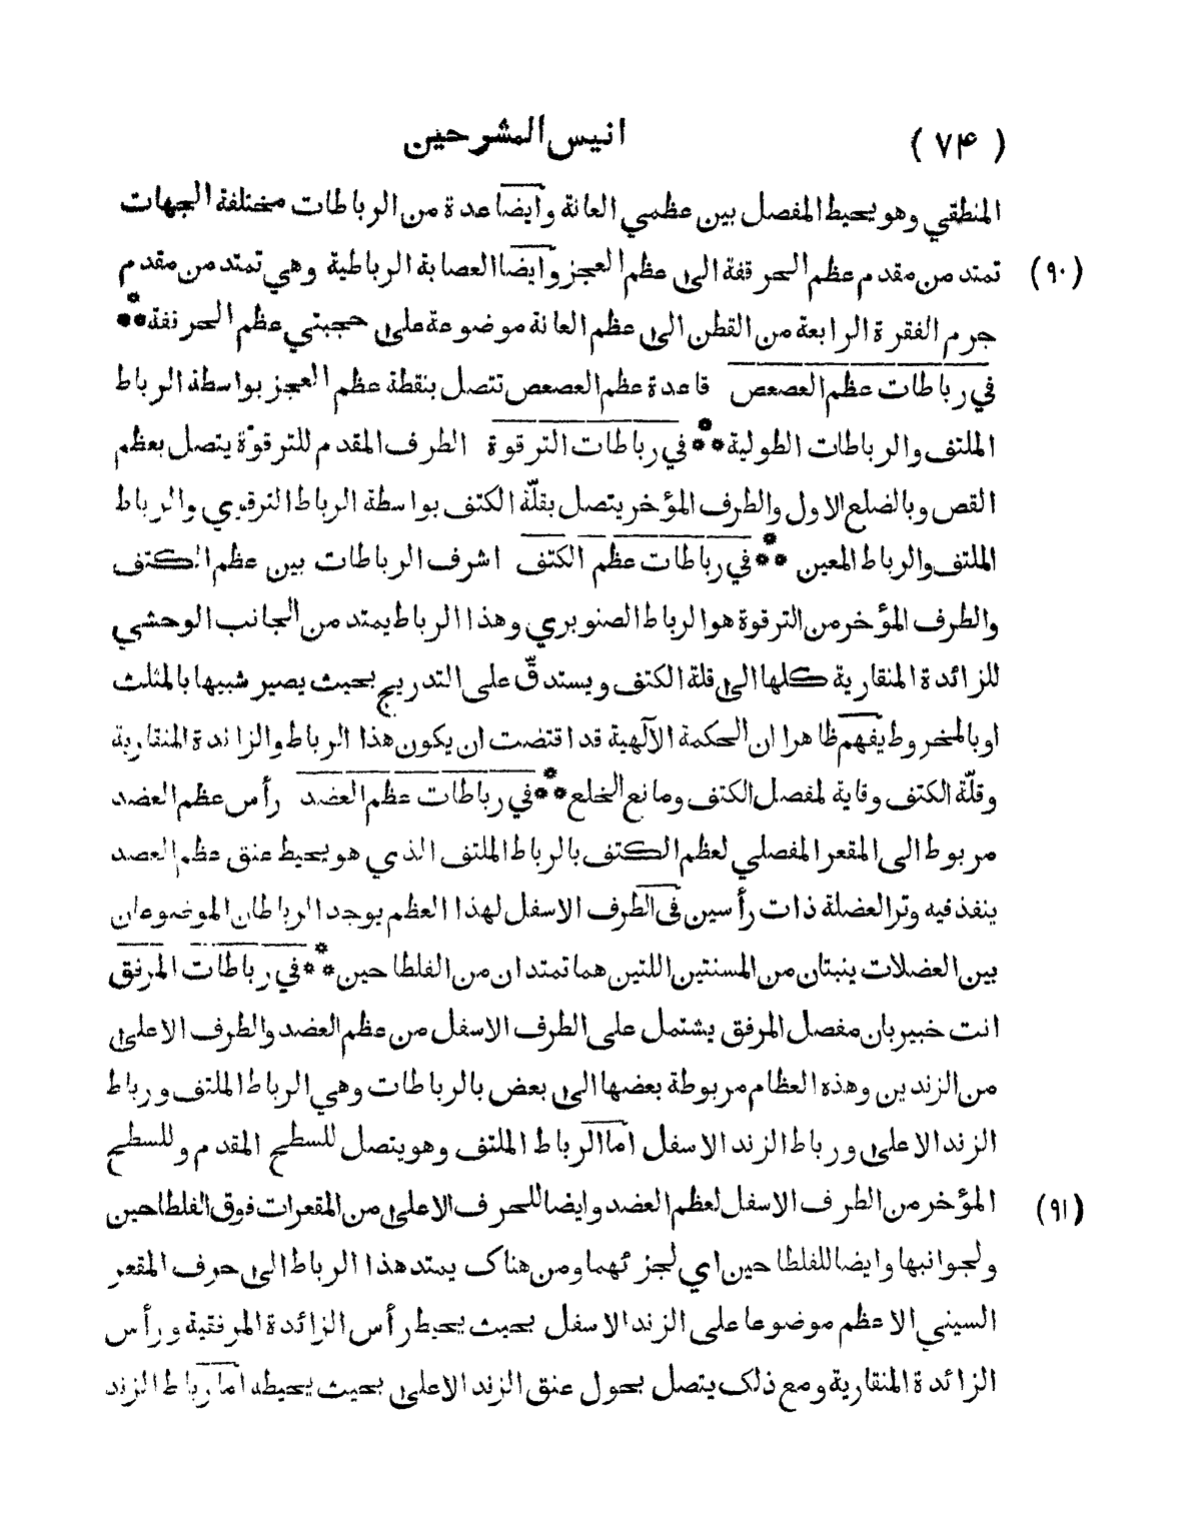 ( ۷۴ ) انيس المشرحين
المنطقي وهو يحيط المفصل بين عظمي العانة وايضا عدة من الرباطات مختلفة الجهات
(۹۰) تمتد من مقدم عظم الحرقفة الى عظم العجز وايضا العصابة الرباطية وهي تمتد من مقدم
جرم الفقرة الرابعة من القطن الى عظم العانة موضوعة على حجبتي عظم الحرنفة ***
في رباطات عظم العصعص قاعدة عظم العصعص تتصل بنقطة عظم العجز بواسطة الرباط
الملتف والرباطات الطولية *** في رباطات الترقوة الطرف المقدم للترقوّة يتصل بعظم
القص وبالضلع الاول والطرف المؤخر يتصل بقلّة الكتف بواسطة الرباط الترقوي والرباط
الملتف والرباط المعين *** في رباطات عظم الكتف اشرف الرباطات بين عظم الكتف
والطرف المؤخر من الترقوة هو الرباط الصنوبري وهذا الرباط يمتد من الجانب الوحشي
للزائدة المنقارية كلها الى قلة الكتف ويستدقّ على التدريج بحيث يصير شبيها بالمثلث
او بالمخروط يفهم ظاهرا ان الحكمة الآلهية قد اقتضت ان يكون هذا الرباط والزائدة المنقارية
وقلّة الكتف وقاية لمفصل الكتف ومانع الخلع *** في رباطات عظم العضد رأس عظم العضد
مربوط الى المقعر المفصلي لعظم الكتف بالرباط الملتف الذي هو يحيط عنق عظم العصد
ينفذ فيه وتر العضلة ذات رأسين فى الطرف الاسفل لهذا العظم يوجد الرباطان الموضوعان
بين العضلات ينبتان من المسنتين اللتين هما تمتدان من الفلطاحين *** في رباطات المرفق
انت خبير بان مفصل المرفق يشتمل على الطرف الاسفل من عظم العضد والطرف الاعلى
من الزندين وهذه العظام مربوطة بعضها الى بعض بالرباطات وهي الرباط الملتف ورباط
الزند الاعلى ورباط الزند الاسفل اما الرباط الملتف وهو يتصل للسطح المقدم وللسطح
(۹۱) المؤخر من الطرف الاسفل لعظم العضد وايضا للحرف الاعلى من المقعرات فوق الفلطاحين
ولجوانبها وايضا للفلطاحين اي لجزئهما ومن هناك يمتد هذا الرباط الى حرف المقعر
السيني الاعظم موضوعا على الزند الاسفل بحيث يحيط رأس الزائدة المرفقية ورأس
الزائدة المنقارية ومع ذلك يتصل بحول عنق الزند الاعلى بحيث يحيطه اما رباط الزند